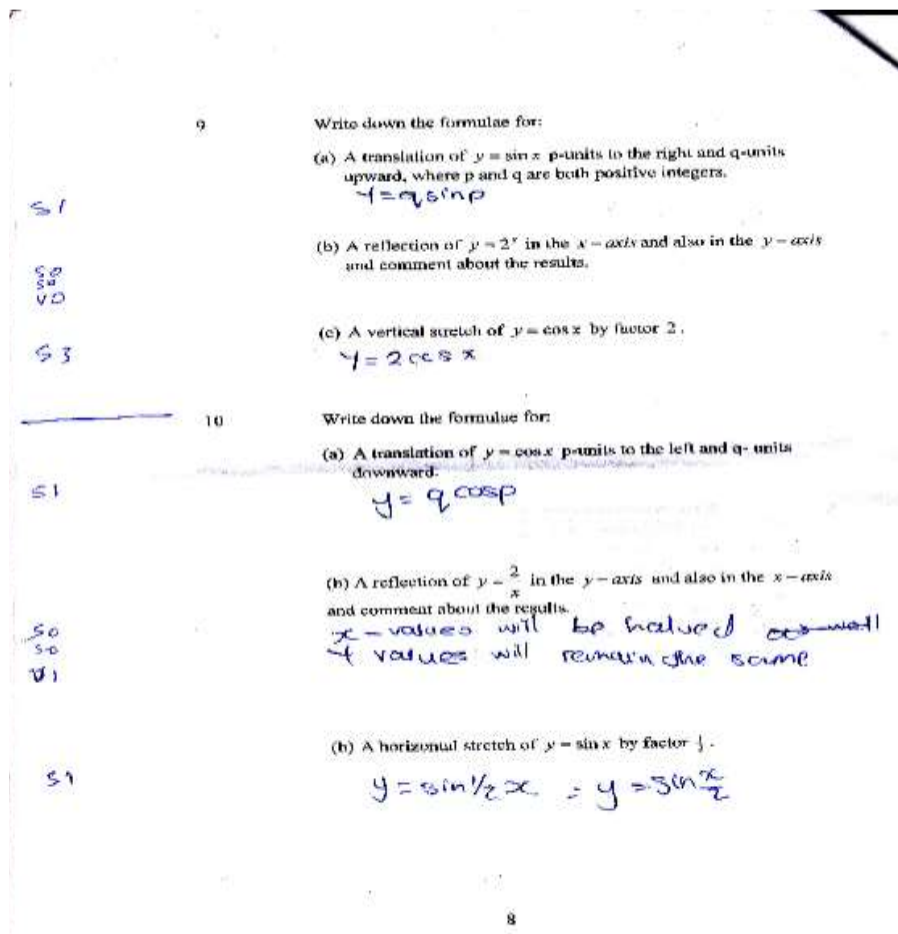 9 Write down the formulae for:
(a) A translation of y = sin x p-units to the right and q-units
upward, where p and q are both positive integers.
S1 Y = q sin p
(b) A reflection of y = 2ˣ in the x – axis and also in the y – axis
and comment about the results.
S0
S0
V0
(c) A vertical stretch of y = cos x by factor 2.
S3 Y = 2 cos x
10 Write down the formulae for:
(a) A translation of y = cos x p-units to the left and q- units
downward.
S1 y = q cos p
(b) A reflection of y = 2/x in the y – axis and also in the x – axis
and comment about the results.
S0 x – values will be halved
S0 Y values will remain the same
V1
(b) A horizontal stretch of y = sin x by factor
S1 y = sin 1/2 x = y = sin x/2
8